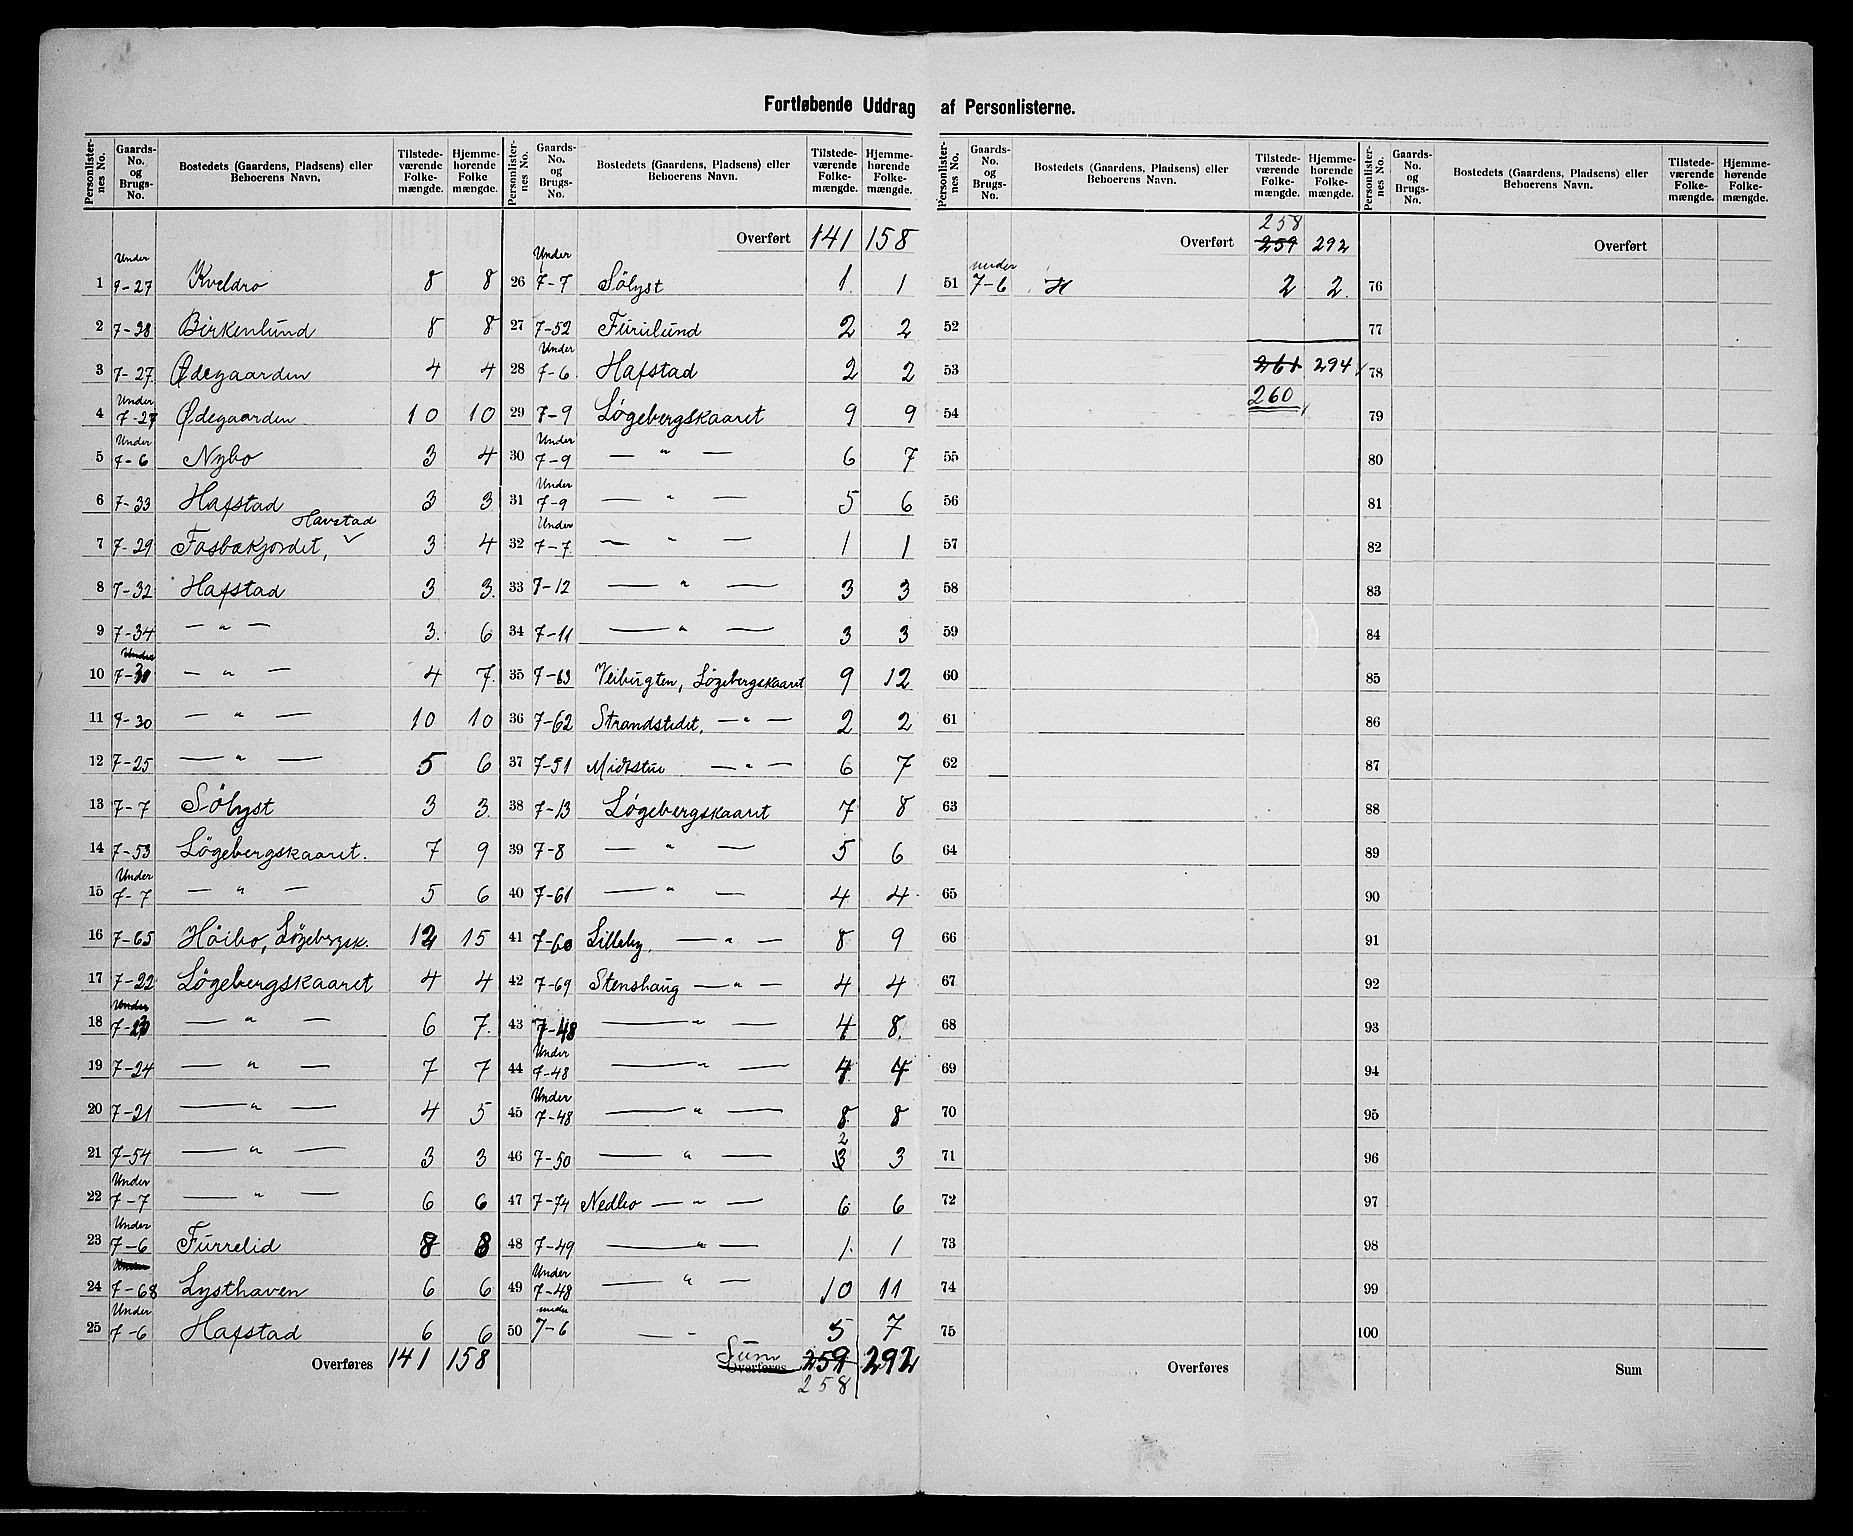 Fortløbende Uddrag af Personlisterne.
Personlisternes No. Gaards-No. og Brugs-No. Bostedets (Gaardens, Pladsens) eller Beboerens Navn. Tilstedeværende Folkemængde. Hjemmehørende Folkemængde.
1 Under 7-27 Kveldro 8 8
2 7-38 Birkenlund 8 8
3 7-27 Ødegaarden 4 4
4 Under 7-27 Ødegaarden 10 10
5 Under 7-6 Nybo 3 4
6 7-33 Hafstad 3 3
Havstad
7 7-29 Fosbækjordet, 3 4
8 7-32 Hafstad 3 3
9 7-34 — " — 3 6
10 Under 7-31 — " — 4 7
11 7-30 — " — 10 10
12 7-25 — " — 5 6
13 7-7 Sölyst 3 3
14 7-53 Løgebergskaaret. 7 9
15 Under 7-7 — " — 5 6
16 7-65 Höibo, Løgebergsk. 12 15
17 7-22 Løgebergskaaret 4 4
18 Under 7-23 — " — 6 7
19 7-24 — " — 7 7
20 7-21 — " — 4 5
21 7-54 — " — 3 3
22 Under 7-7 — " — 6 6
23 Under 7-6 Furrelid 8 8
24 Under 7-68 Lysthaven 6 6
25 Under 7-6 Hafstad 6 6
Overføres 141 158
Personlisternes No. Gaards-No. og Brugs-No. Bostedets (Gaardens, Pladsens) eller Beboerens Navn. Tilstedeværende Folkemængde. Hjemmehørende Folkemængde.
Overført 141 158
26 Under 7-7 Sölyst 1 1
27 7-52 Furulund 2 2
28 Under 7-6 Hafstad 2 2
29 7-9 Løgebergskaaret 9 9
30 Under 7-9 — " — 6 7
31 Under 7-9 — " — 5 6
32 Under 7-7 — " — 1 1
33 7-12 — " — 3 3
34 7-11 — " — 3 3
35 7-63 Veibugten, Løgebergskaaret 9 12
36 7-62 Strandstedet, — " — 2 2
37 7-51 Midtstue — " — 6 7
38 7-13 Løgebergskaaret 7 8
39 7-8 — " — 5 6
40 7-61 — " — 4 4
41 7-60 Lilleby, — " — 8 9
42 7-69 Stenshaug — " — 4 4
43 7-48 — " — 4 8
44 Under 7-48 — " — 4 4
45 Under 7-48 — " — 8 8
46 7-50 — " — 3 2 3
47 7-74 Nedbo — " — 6 6
48 7-49 — " — 1 1
49 Under 7-48 — " — 10 11
50 under 7-6 — " — 5 7
Sum Overføres 259 292
258
Personlisternes No. Gaards-No. og Brugs-No. Bostedets (Gaardens, Pladsens) eller Beboerens Navn. Tilstedeværende Folkemængde. Hjemmehørende Folkemængde.
258
Overført 259 292
51 under 7-6 H 2 2
52
53 261 294
54 260
55
56
57
58
59
60
61
62
63
64
65
66
67
68
69
70
71
72
73
74
75
Overføres
Personlisternes No. Gaards-No. og Brugs-No. Bostedets (Gaardens, Pladsens) eller Beboerens Navn. Tilstedeværende Folkemængde. Hjemmehørende Folkemængde.
Overført
76
77
78
79
80
81
82
83
84
85
86
87
88
89
90
91
92
93
94
95
96
97
98
99
100
Sum